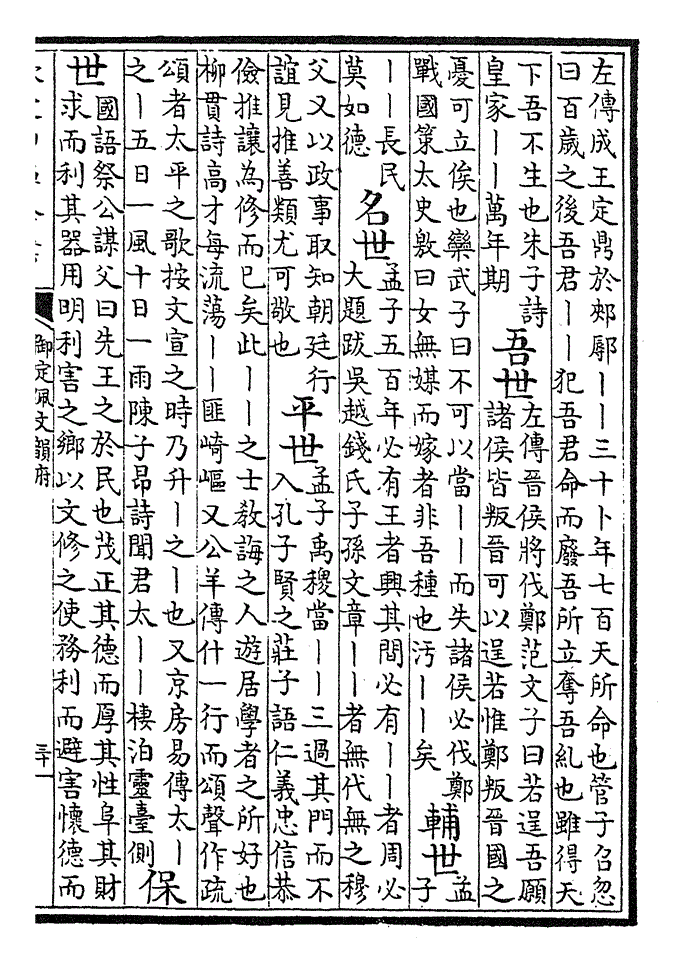 左傳成王定鼎於郟鄏丨丨三十卜年七百天所命也管子召忽
曰百歲之後吾君丨丨犯吾君命而廢吾所立奪吾糺也雖得天
下吾不生也朱子詩
皇家丨丨萬年期
吾世
左傳晉侯將伐鄭范文子曰若逞吾願
諸侯皆叛晉可以逞若惟鄭叛晉國之
憂可立俟也欒武子曰不可以當丨丨而失諸侯必伐鄭
戰國策太史敫曰女無媒而嫁者非吾種也汚丨丨矣
輔世
孟
子
丨丨長民
莫如德
名世
孟子五百年必有王者興其間必有丨丨者周必
大題跋吳越錢氏子孫文章丨丨者無代無之穆
父又以政事取知朝廷行
誼見推善類尤可敬也
平世
孟子禹稷當丨丨三過其門而不
入孔子賢之莊子語仁義忠信恭
儉推讓為修而已矣此丨丨之士教誨之人遊居學者之所好也
柳貫詩高才每流蕩丨丨匪崎嶇又公羊傳什一行而頌聲作疏
頌者太平之歌按文宣之時乃升丨之丨也又京房易傳太丨
之丨五日一風十日一雨陳子昂詩聞君太丨丨棲泊靈臺側
保
世
國語祭公謀父曰先王之於民也茂正其德而厚其性阜其財
求而利其器用明利害之鄉以文修之使務利而避害懷德而
御定佩文韻府
三十一